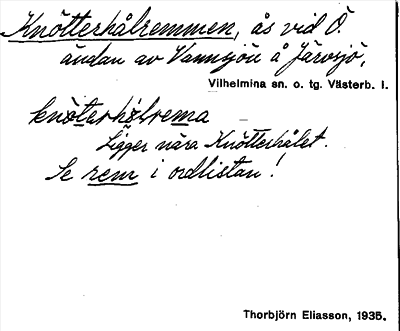 Knötterhålremmen, ås vid Ö.
ändan av Vannsjön å Järvsjö,
Vilhelmina sn. o. tg. Västerb. l.
knöterhølrema
Ligger nära Knötterhålet.
Se rem i ordlistan!
Thorbjörn Eliasson, 1935.